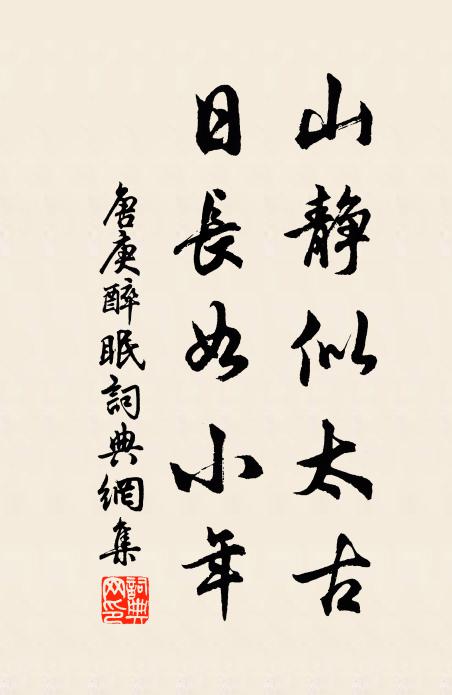 山靜似太古
日長如小年
唐庚醉眠詞典網集
詞典網印